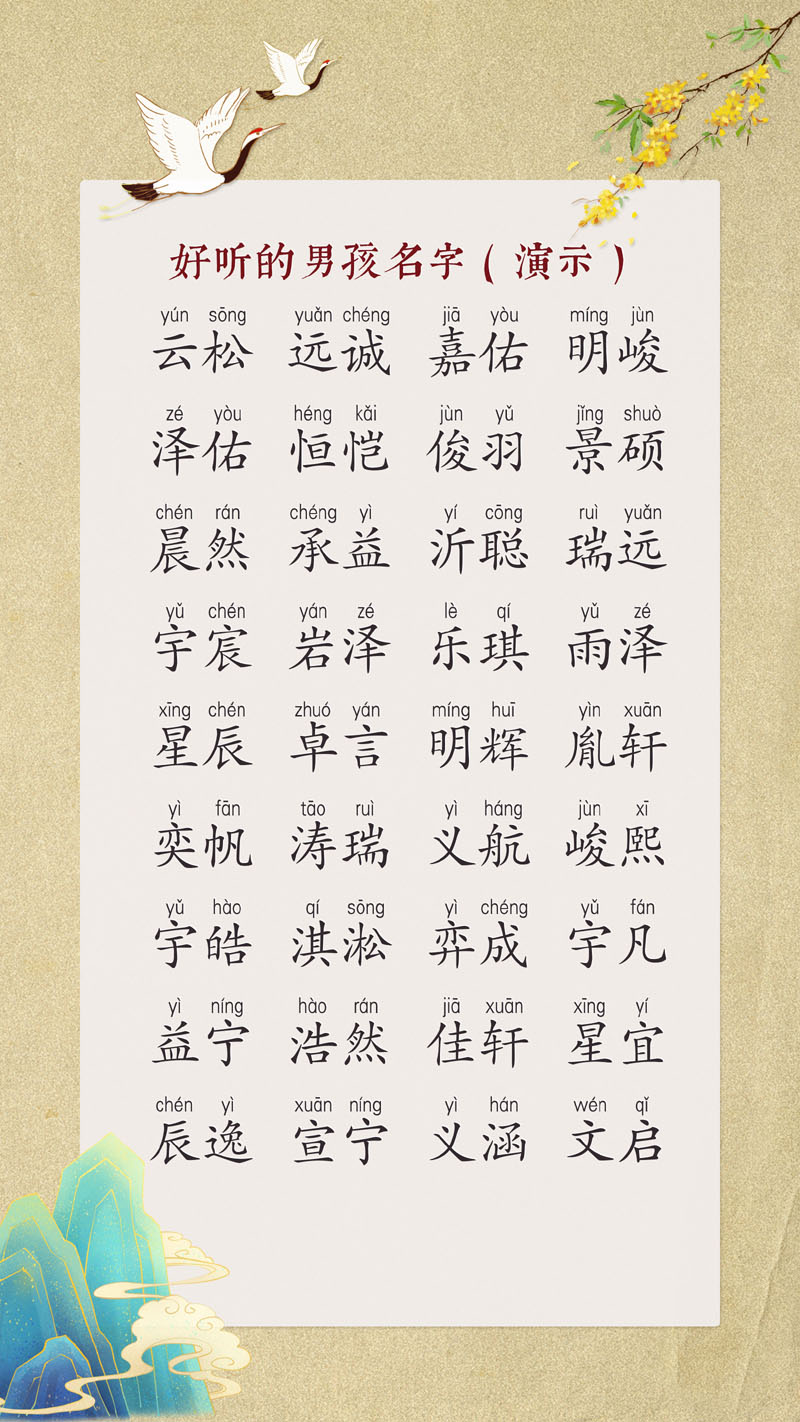 好听的男孩名字（演示）
yún sōng yuǎn chéng jiā yòu míng jùn
云松 远诚 嘉佑 明峻
zé yòu héng kǎi jùn yǔ jǐng shuò
泽佑 恒恺 俊羽 景硕
chén rán chéng yì yí cōng ruì yuǎn
晨然 承益 沂聪 瑞远
yǔ chén yán zé lè qí yǔ zé
宇宸 岩泽 乐琪 雨泽
xīng chén zhuó yán míng huī yìn xuān
星辰 卓言 明辉 胤轩
yì fān tāo ruì yì háng jùn xī
奕帆 涛瑞 义航 峻熙
yǔ hào qí sōng yì chéng yǔ fán
宇皓 淇淞 弈成 宇凡
yì níng hào rán jiā xuān xīng yí
益宁 浩然 佳轩 星宜
chén yì xuān níng yì hán wén qǐ
辰逸 宣宁 义涵 文启